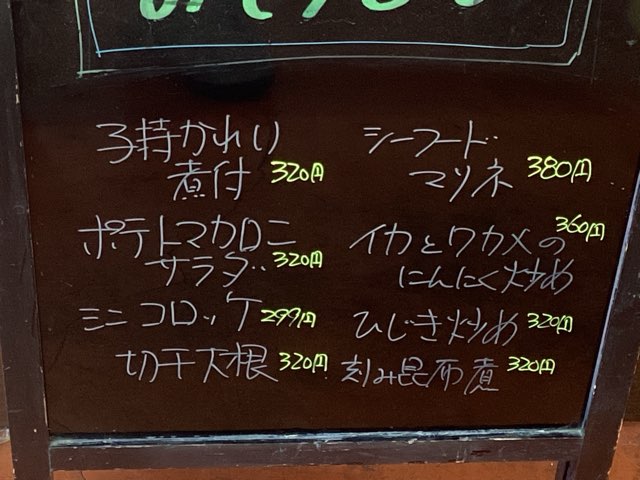 子持かれい
煮付 320円
ポテトマカロニ
サラダ 320円
ミニコロッケ 299円
切干大根 320円
シーフード
マリネ 380円
イカとワカメの 360円
にんにく炒め
ひじき炒め 320円
刻み昆布煮 320円